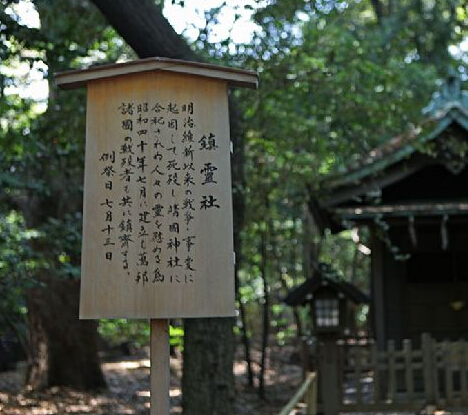 鎮霊社
明治維新以来の戦争・事変に
起因して死歿し靖國神社に
合祀されぬ人々の霊を慰める為
昭和四十年七月に建立し萬邦
諸國の戦歿者も共に鎮齋する。
例祭日 七月十三日